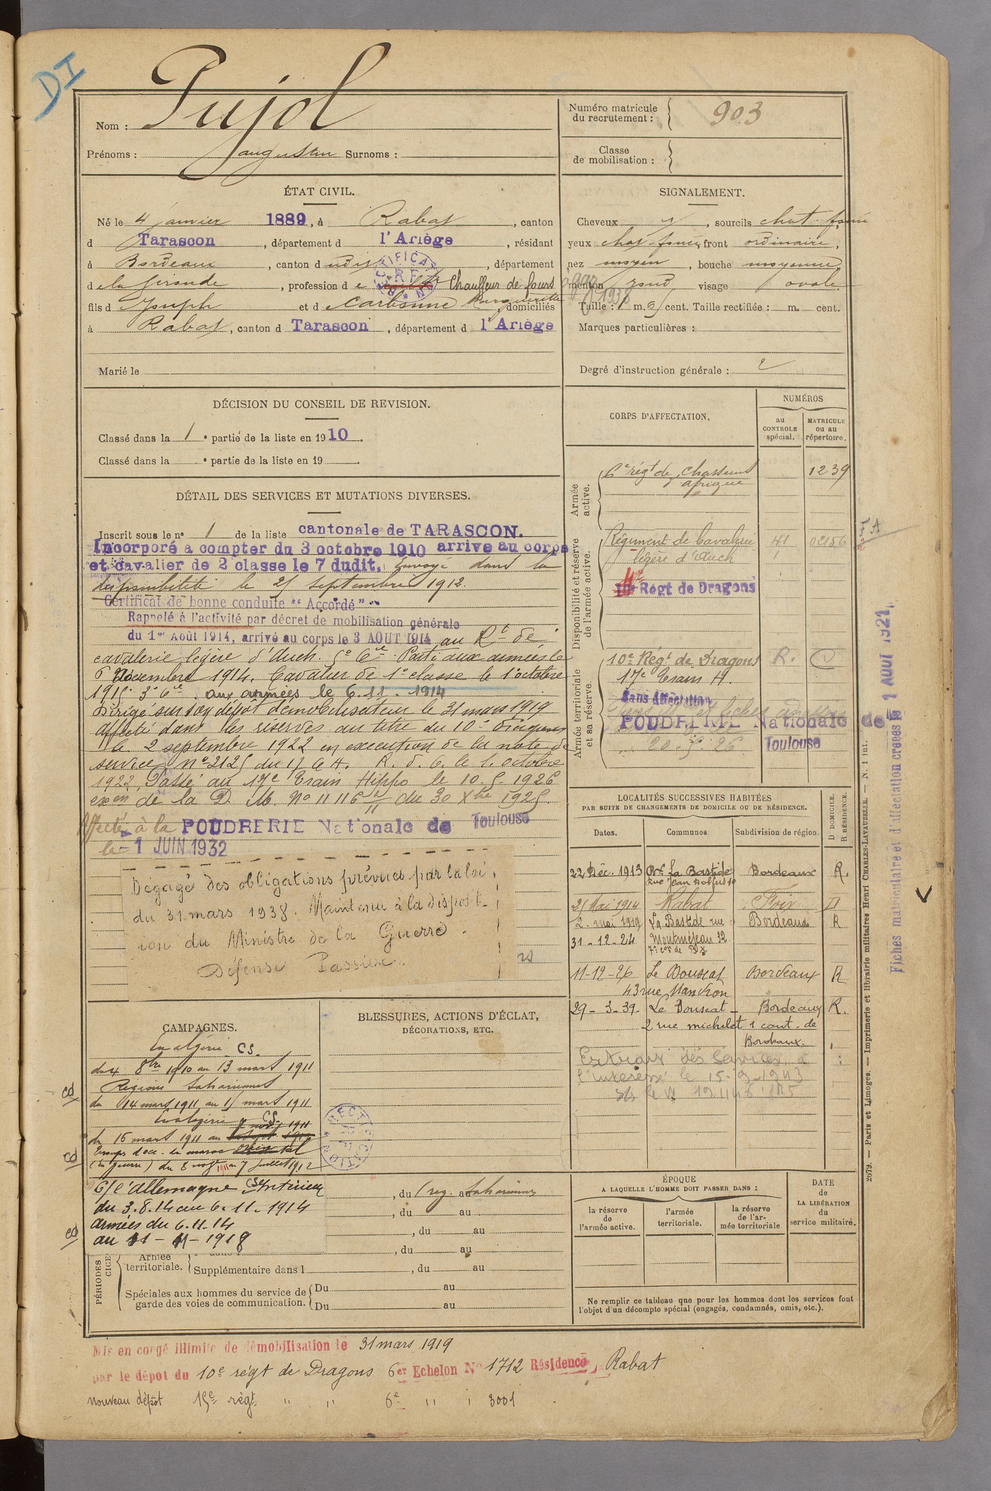 DI
Nom : Pujol
Prénoms : augustin Surnoms :
Numéro matricule du recrutement : 903
Classe de mobilisation :
ÉTAT CIVIL.
Né le 4 janvier 1889, à Rabat, canton
d Tarascon, département d l'Ariège, résidant
à Bordeaux, canton d udit, département
d e la Gironde, profession d e Chauffeur de fours
fils d Joseph et d e Carbonne Marguerite domiciliés
à Rabat, canton d Tarascon, département d l'Ariège
Marié le
SIGNALEMENT.
Cheveux , sourcils chat. foncé
yeux chat. foncé, front ordinaire,
nez moyen, bouche moyenne
menton rond visage ovale
Taille : 1 m. cent. Taille rectifiée : m. cent.
Marques particulières :
Degré d'instruction générale : 2
DÉCISION DU CONSEIL DE REVISION.
Classé dans la 1 e partie de la liste en 1910.
Classé dans la e partie de la liste en 19
DÉTAIL DES SERVICES ET MUTATIONS DIVERSES.
Inscrit sous le n° 1 de la liste cantonale de TARASCON.
Incorporé a compter du 3 octobre 1910 arrive au corps
et cavalier de 2 classe le 7 dudit, Envoyé dans la
disponibilité le 25 septembre 1912.
Certificat de bonne conduite "Accordé"
Rappelé à l'activité par décret de mobilisation générale
du 1er Août 1914, arrivé au corps le 3 AOUT 1914 au Rt de
cavalerie légère d'Auch. Parti aux armées le
6 Novembre 1914. Cavalier de 1e classe le 1 octobre
aux armées le 6.11.1914
Dirigé sur son dépôt démobilisateur le 31 mars 1919
Affecté dans les réserves au titre du 10e Dragons
le 2 septembre 1922 en exécution de la note de
service n° 2125 du 17 C A. R. d. C. le 1 octobre
1922, Passé au 17e Train Hippo le 10.5.1926
exon de la D. M. No 11116 du 30 Xbre 1925.
Affecté à la POUDRERIE Nationale de Toulouse
le 1 JUIN 1932
Dégagé des obligations prévues par la loi
du 31 mars 1938. Maintenu à la disposit-
ion du Ministre de la Guerre.
Défense Passive.
CORPS D'AFFECTATION.
NUMÉROS
au CONTROLE spécial.
MATRICULE ou au répertoire.
Armée active.
6e régt de Chasseurs afrique 1239
Disponibilité et réserve de l'armée active.
Régiment de Cavalerie légère d'Auch 41 02156
10e Régt de Dragons
Armée territoriale et sa réserve.
10e Régt de Dragons R.
17e Train H.
Sans Affectation
POUDRERIE Nationale de Toulouse
Fiches matriculaire et d'affectation créées le 1 AOUT 1921
LOCALITÉS SUCCESSIVES HABITÉES
PAR SUITE DE CHANGEMENTS DE DOMICILE OU DE RÉSIDENCE.
Dates. Communes. Subdivision de région. D DOMICILE. R RÉSIDENCE.
22 Déc. 1913 Bx La Bastide Bordeaux R.
21 Mai 1914 Rabat Foix D
2 mai 1919 La Bastide rue Bordeaux R
31-12-24 Montméjean 12
11-12-26 Le Bouscat Bordeaux R
43 rue Mandron
29-3-39. Le Bouscat Bordeaux R.
2 rue michelet 1 cant. de
Bordeaux.
Extrait des services à
l'intéressé le 15-9-1943
CAMPAGNES.
En algérie CS.
du 4 8bre 1910 au 13 mars 1911
Régions Sahariennes
du 14 mars 1911 au 15 mars 1911
En algérie CS
du 16 mars 1911 au 7 1911
Troupes d'occ. du maroc
(en guerre) du 8 au 7 juillet 1912
C/ l'allemagne CS Intérieur
du 3.8.14 au 6.11.1914
armées du 6.11.14
au 11-11-1918
BLESSURES, ACTIONS D'ÉCLAT,
DÉCORATIONS, ETC.
, du (rég. au Sahariennes
, du au
, du au
, du au
PÉRIODES
Armée territoriale. Supplémentaire dans l , du au
Spéciales aux hommes du service de garde des voies de communication. Du au
Du au
ÉPOQUE
A LAQUELLE L'HOMME DOIT PASSER DANS :
la réserve de l'armée active.
l'armée territoriale.
la réserve de l'armée territoriale
DATE DE LA LIBÉRATION du service militaire.
Ne remplir ce tableau que pour les hommes dont les services font
l'objet d'un décompte spécial (engagés, condamnés, omis, etc.).
2679. — Paris et Limoges. — Imprimerie et librairie militaires Henri CHARLES-LAVAUZELLE. — N. 1 int.
Mis en congé illimité de démobilisation le 31 mars 1919
par le dépot du 10e régt de Dragons 6er Echelon No 1712 Résidence Rabat
nouveau dépôt 15e régt " " 6e " " 3001